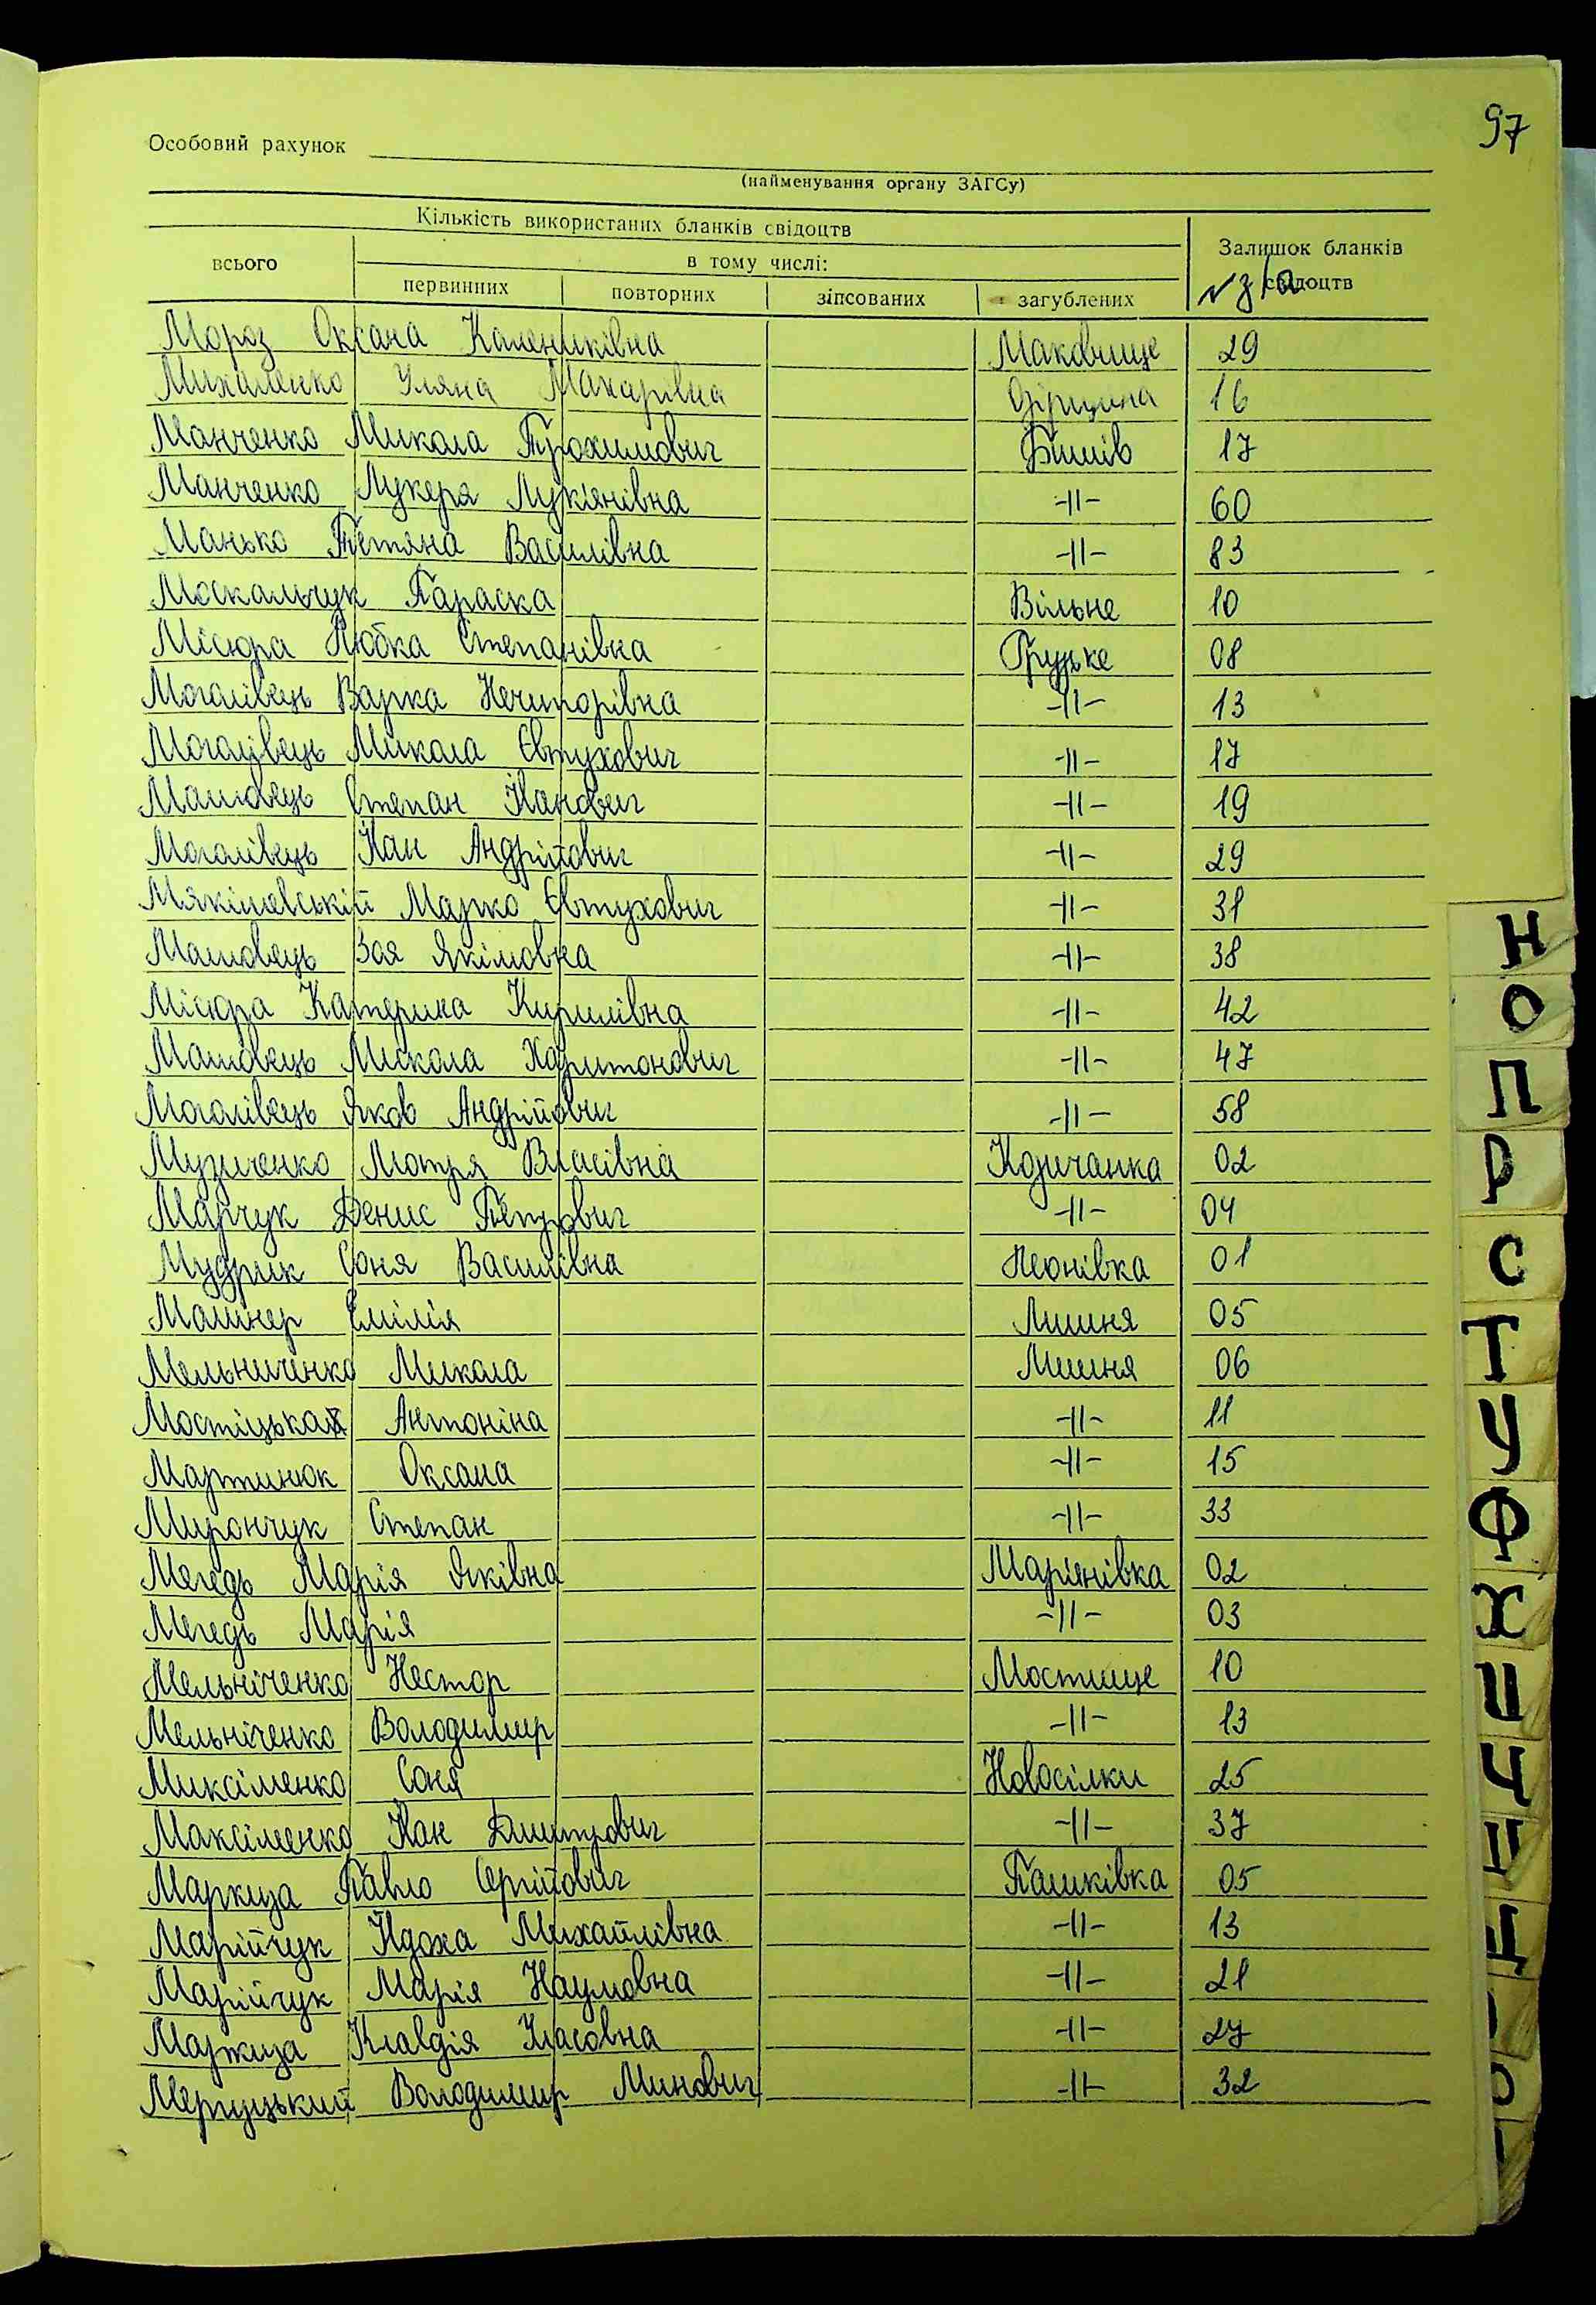 97
Особовий рахунок
(найменування органу ЗАГСу)
Кількість використаних бланків свідоцтв
Залишок бланків свідоцтв
всього
в тому числі:
первинних повторних зіпсованих загублених
№ з/а
Мороз Оксана Калениківна Маковище 29
Михаленко Уляна Макарівна 16
Манченко Микола Трохимович Бишів 17
Манченко Лукеря Лук'янівна -||- 60
Манько Тетяна Василівна -||- 83
Москальчук Параска Вільне 10
Місюра Любка Степанівна Грузьке 08
Могалівець Варка Нечипорівна -||- 13
Могалівець Микола Євтухович -||- 17
Машовець Степан Іванович -||- 19
Могалівець Іван Андрійович -||- 29
Мякіловський Марко Євтухович -||- 31
Машовець Зоя Якімовна -||- 38
Місюра Катерина Кирилівна -||- 42
Машовець Микола Харитонович -||- 47
Могалівець Яков Андрійович -||- 58
Музиченко Мотря Власівна Козичанка 02
Марчук Денис Петрович -||- 04
Мудрик Соня Василівна Леонівка 01
Машнер Емілія Лишня 05
Мельниченко Микола Лишня 06
Мостіцькай Антоніна -||- 11
Мартинюк Оксана -||- 15
Мирончук Степан -||- 33
Мегедь Марія Яківна Мар'янівка 02
Мегедь Марія -||- 03
Мельніченко Нестор Мостище 10
Мельніченко Володимир -||- 13
Миксіменко Соня Новосілки 25
Максіменко Іван Дмитрович -||- 37
Маркиза Павло Сергійович Пашківка 05
Марійчук Ядоха Михайлівна -||- 13
Марійчук Марія Наумовна -||- 21
Маркиза Клавдія Власовна -||- 27
Мервуцький Володимир Минович -||- 32
Н
О
П
Р
С
Т
У
Ф
Х
Ц
Ч